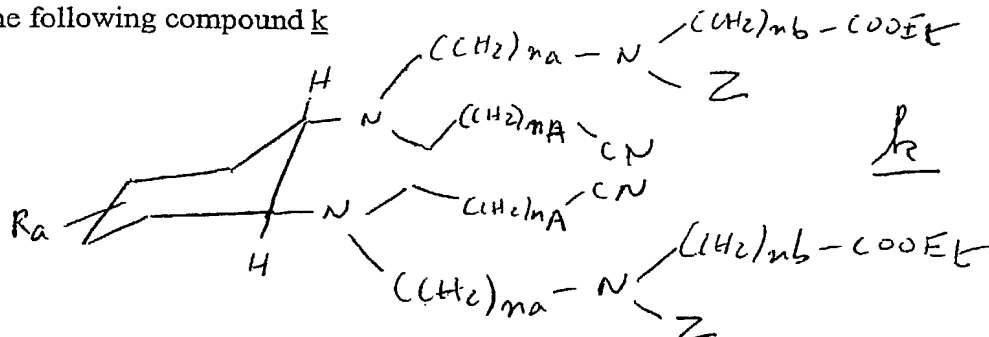 he following compound k
((CH2)na – N
(CH2)nb – COOEt
Z
H
N
(CH2)nA
CN
k
CN
(CH2)nA
N
Ra
H
((CH2)na – N
(CH2)nb – COOEt
Z